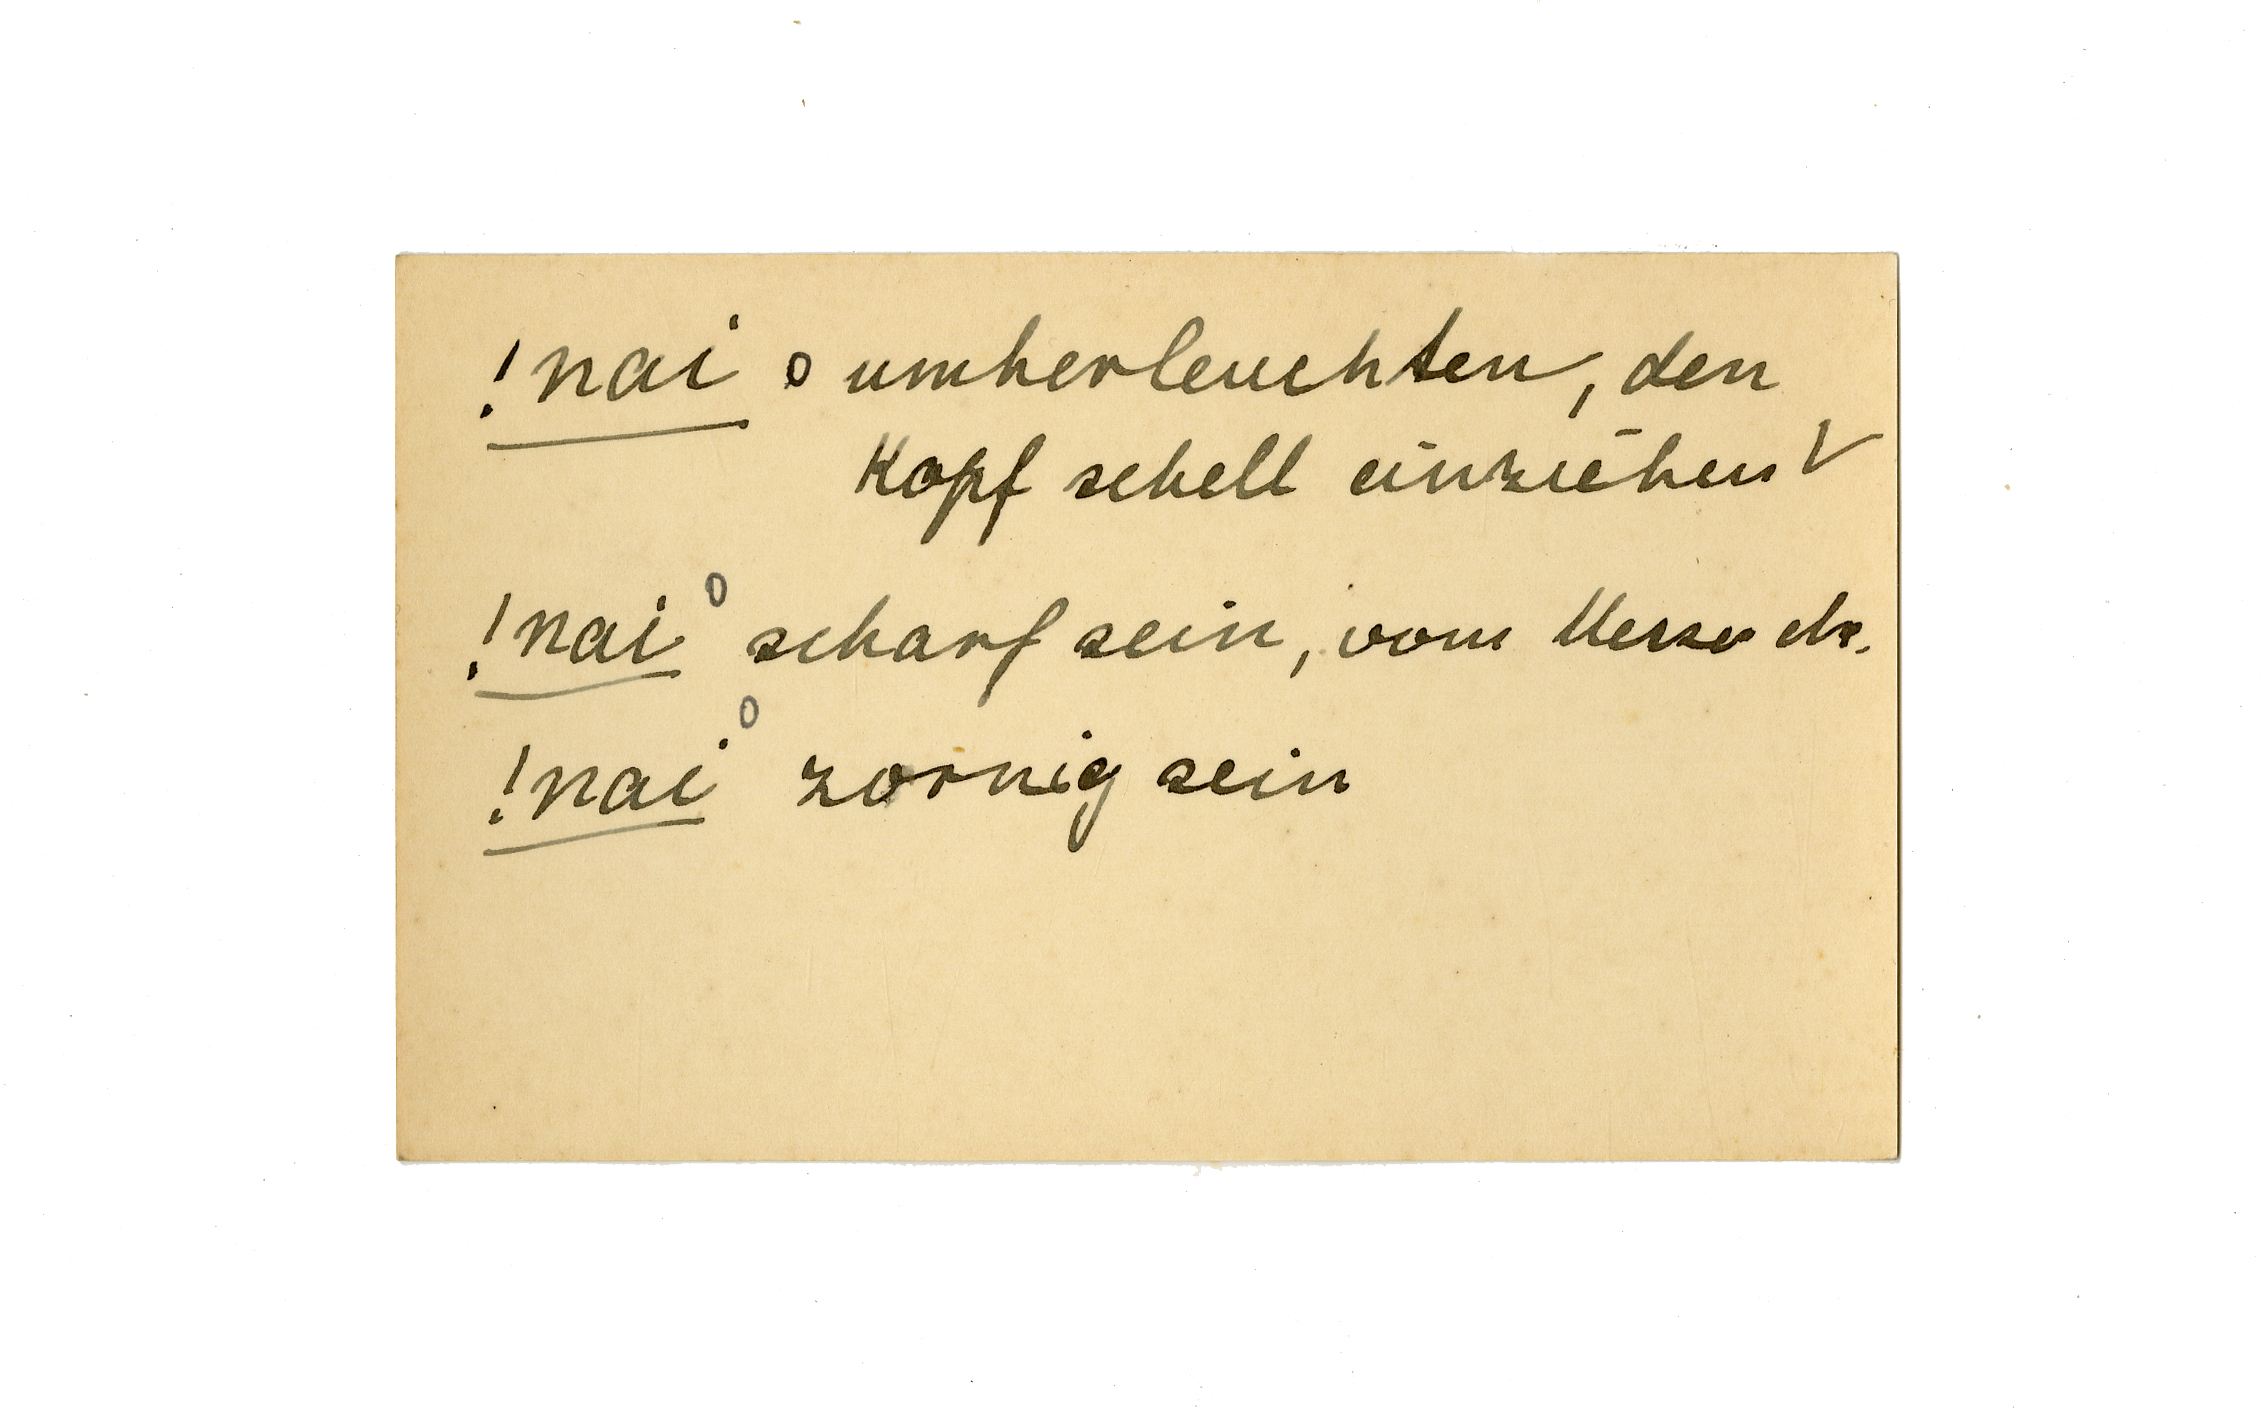 !nai o umherleuchten, den
Kopf schell einziehen V
!nai o scharf sein, vom Messer
!nai o zornig sein